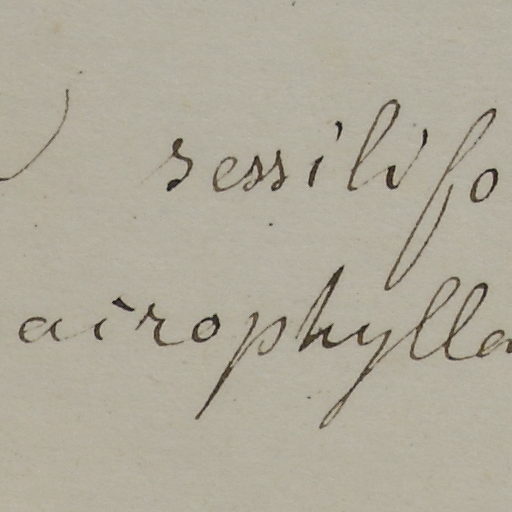 sessilifo
acrophylla